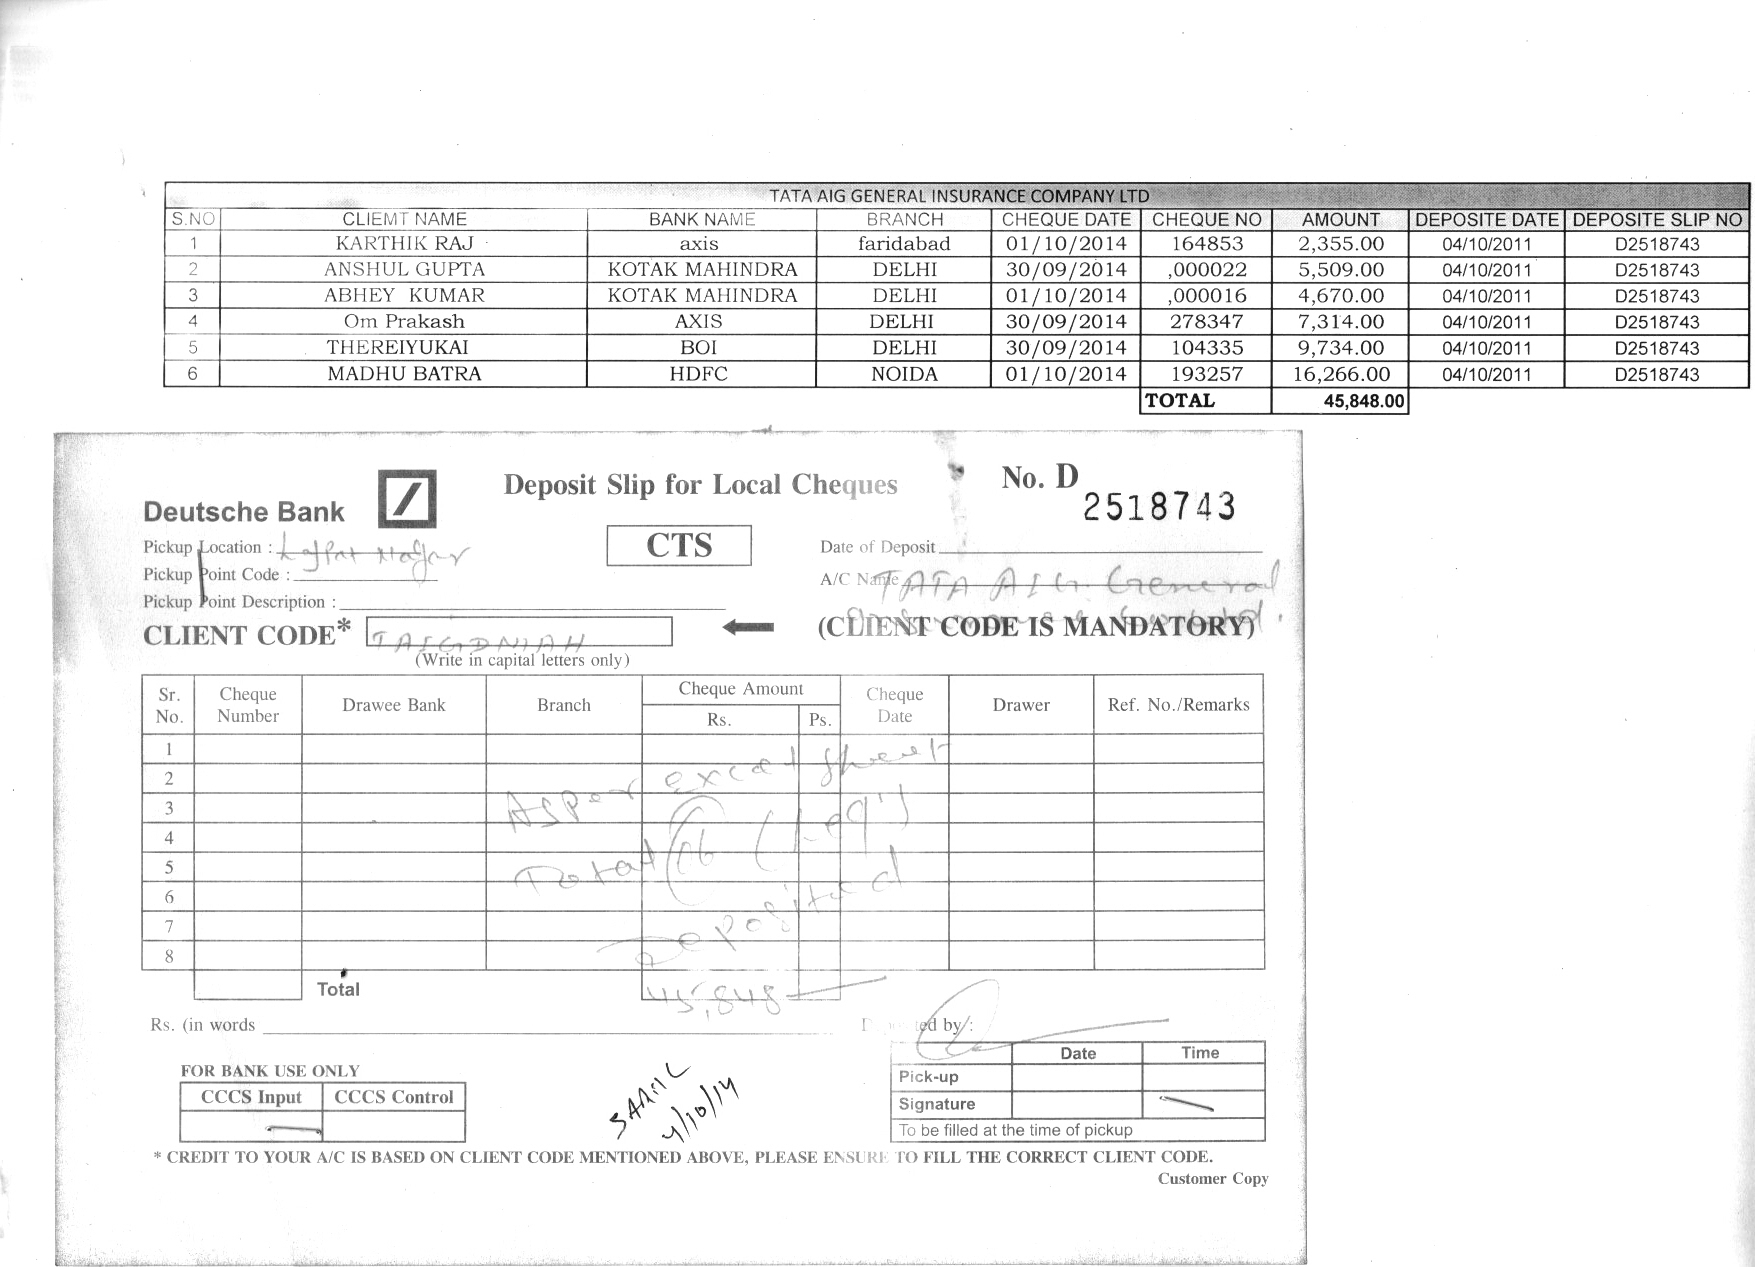 TATA AIG GENERAL INSURANCE COMPANY LTD
S.NO CLIEMT NAME BANK NAME BRANCH CHEQUE DATE CHEQUE NO AMOUNT DEPOSITE DATE DEPOSITE SLIP NO
1 KARTHIK RAJ axis faridabad 01/10/2014 164853 2,355.00 04/10/2011 D2518743
2 ANSHUL GUPTA KOTAK MAHINDRA DELHI 30/09/2014 ,000022 5,509.00 04/10/2011 D2518743
3 ABHEY KUMAR KOTAK MAHINDRA DELHI 01/10/2014 ,000016 4,670.00 04/10/2011 D2518743
4 Om Prakash AXIS DELHI 30/09/2014 278347 7,314.00 04/10/2011 D2518743
5 THEREIYUKAI BOI DELHI 30/09/2014 104335 9,734.00 04/10/2011 D2518743
6 MADHU BATRA HDFC NOIDA 01/10/2014 193257 16,266.00 04/10/2011 D2518743
TOTAL 45,848.00
Deutsche Bank Deposit Slip for Local Cheques No. D 2518743
Pickup Location : Lajpat Nagar CTS Date of Deposit
Pickup Point Code : A/C Name TATA AIG General
Pickup Point Description :
CLIENT CODE* TAIGDNIAH (CLIENT CODE IS MANDATORY)
(Write in capital letters only)
Sr. No. Cheque Number Drawee Bank Branch Cheque Amount Rs. Ps. Cheque Date Drawer Ref. No./Remarks
1
2
3
4
5
6
7
8
As per excel sheet
Total 06
Deposited
Total 45,848
Rs. (in words by :
Date Time
FOR BANK USE ONLY
CCCS Input CCCS Control
Pick-up
Signature
To be filled at the time of pickup
4/10/14
* CREDIT TO YOUR A/C IS BASED ON CLIENT CODE MENTIONED ABOVE, PLEASE ENSURE TO FILL THE CORRECT CLIENT CODE.
Customer Copy